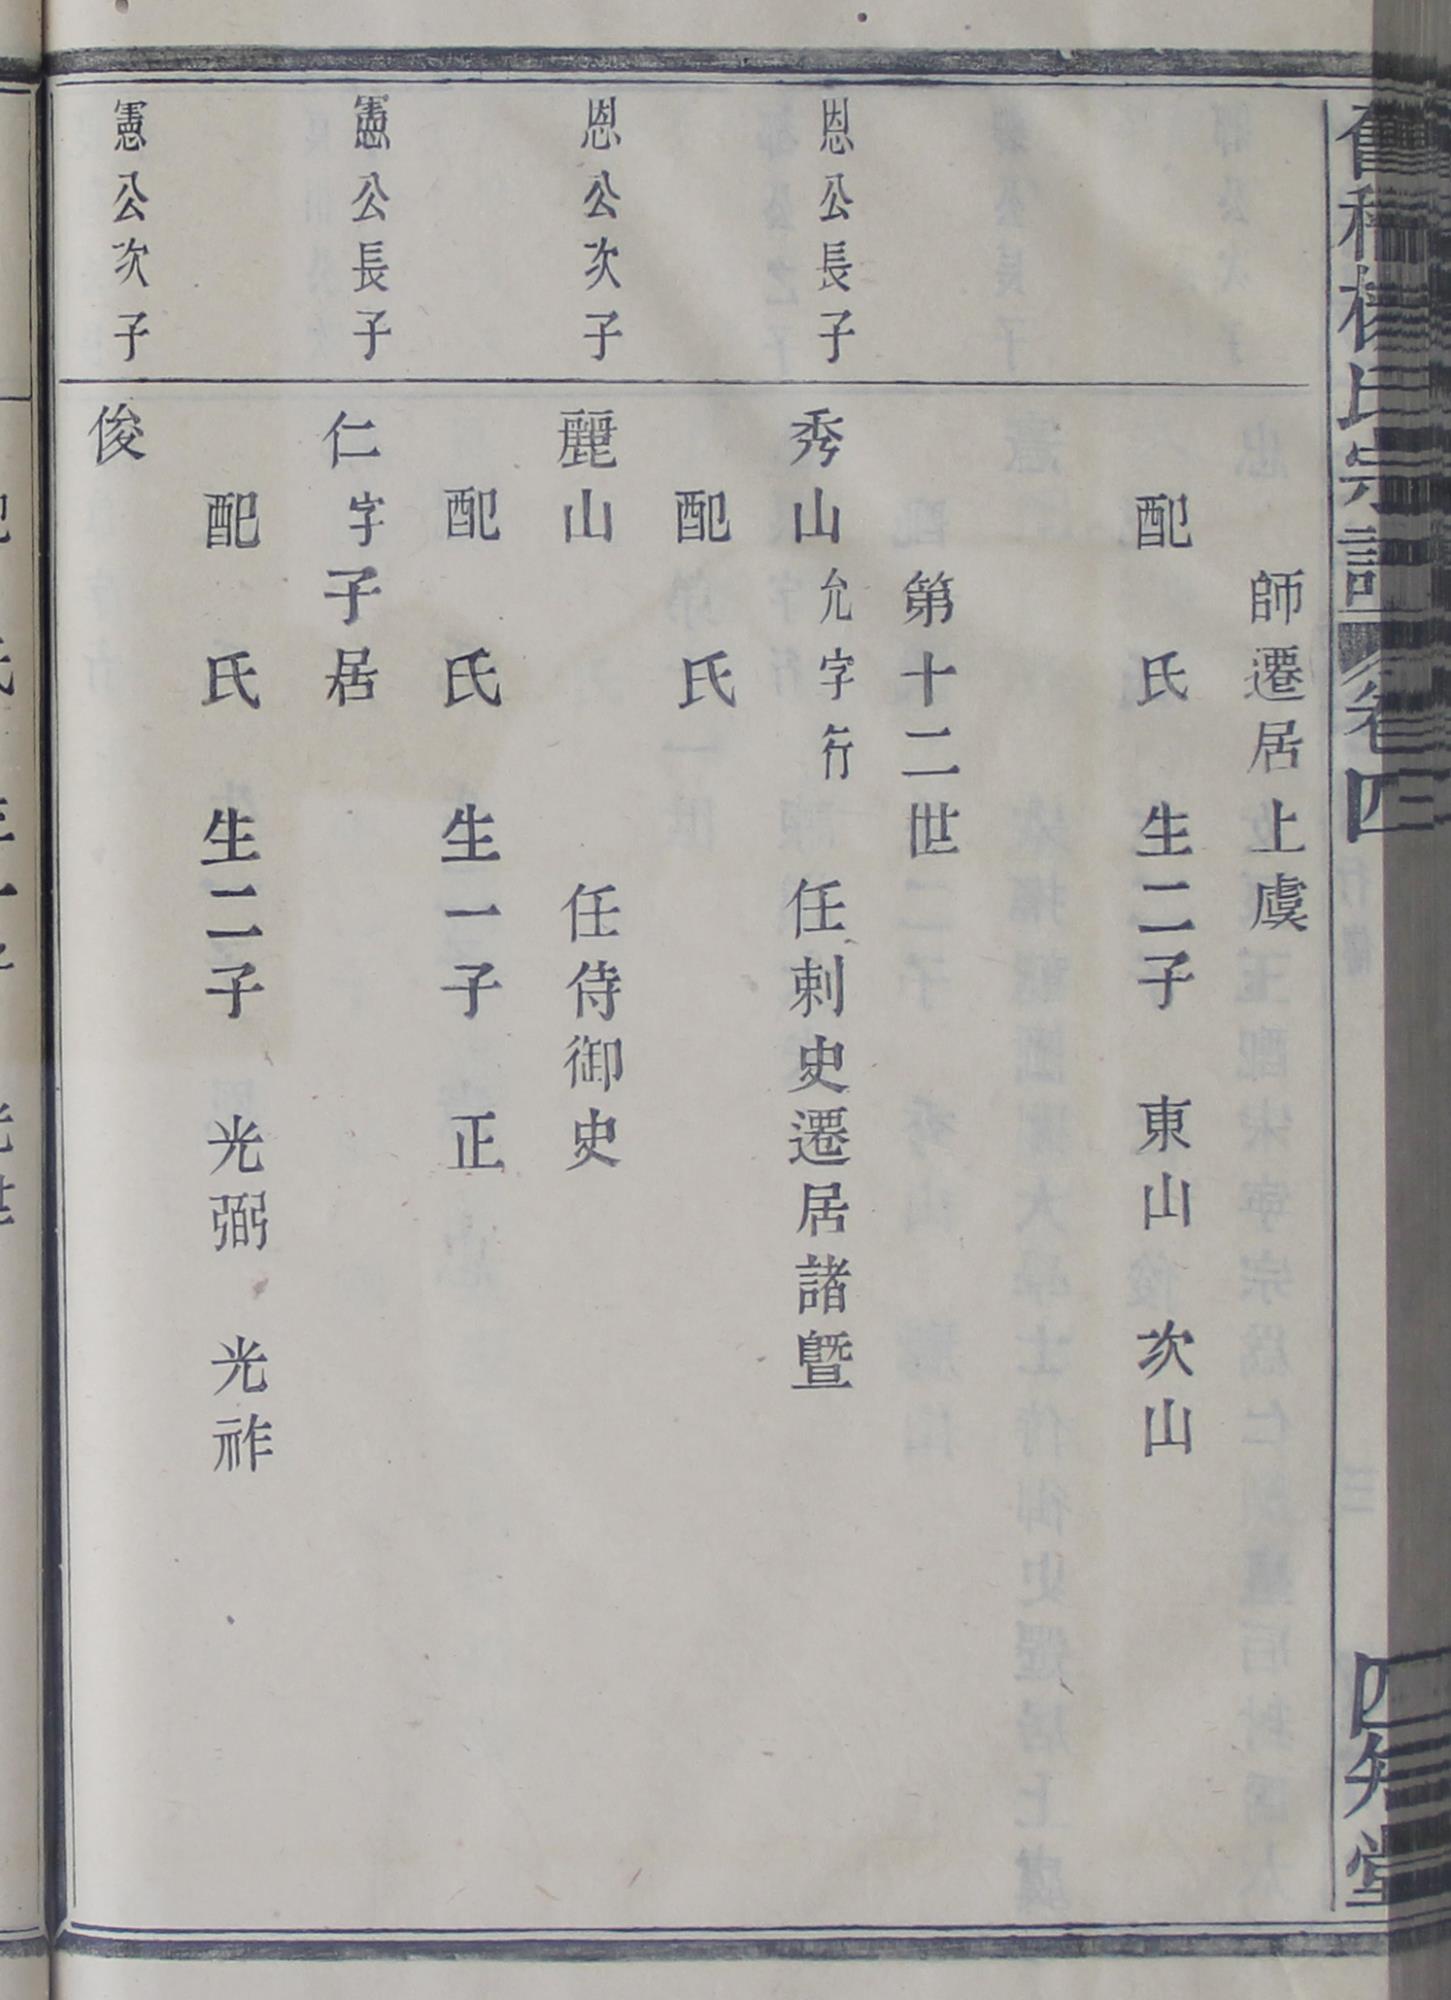 氏宗譜 卷四 四知堂
師遷居上虞
配 氏 生二子 東山 次山
第十二世
恩公長子 秀山允字行 任刺史遷居諸暨
配 氏
恩公次子 麗山 任侍御史
配 氏 生一子 正
憲公長子 仁字子居
配 氏 生二子 光弼 光祚
憲公次子 俊